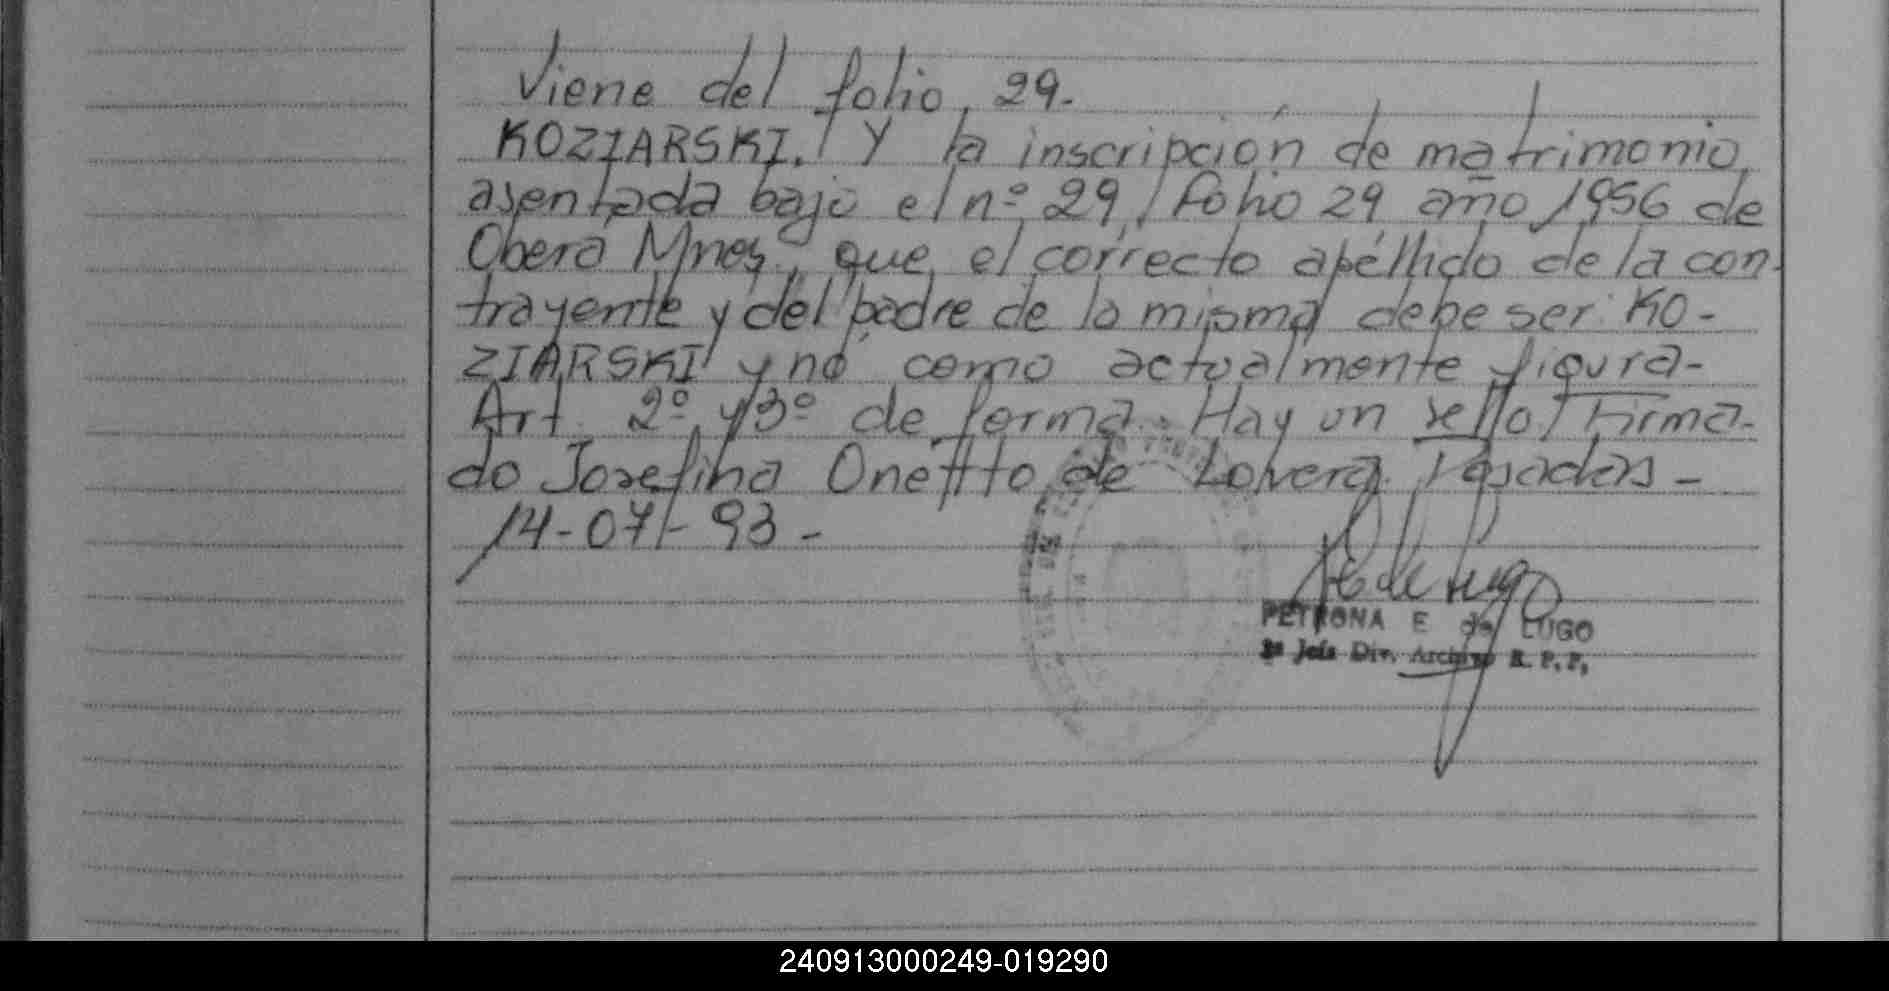 Viene del folio, 29.
KOZIARSKI. Y la inscripción de matrimonio,
asentada bajo el nº 29, folio 29 año 1956 de
Obera Mnes, que el correcto apellido de la con-
trayente y del padre de la misma debe ser KO-
ZIARSKI y no como actualmente figura-
Art. 2º y 3º de forma. Hay un sello firma-
do Josefina Onetto de Lovera. Posadas -
14-07-93 -
PETRONA E de LUGO
Div. Archivo R. P. P.
240913000249-019290